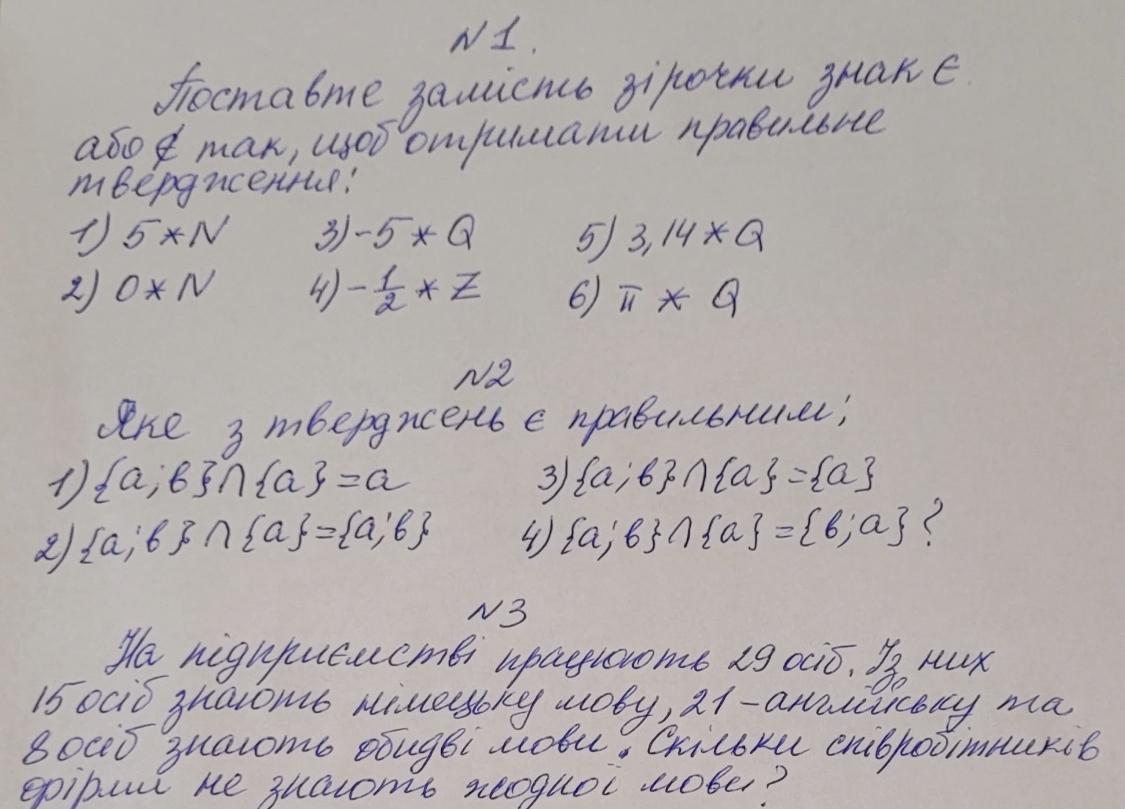 N1.
Поставте замість зірочки знак ∈
або ∉ так, щоб отримати правильне
твердження:
1) 5 * N 3) -5 * Q 5) 3,14 * Q
2) 0 * N 4) -1/2 * Z 6) π * Q
N2
Яке з тверджень є правильним:
1) {а;в} ∩ {а} = а 3) {а;в} ∩ {а} = {а}
2) {а;в} ∩ {а} = {а;в} 4) {а;в} ∩ {а} = {в;а} ?
N3
На підприємстві працюють 29 осіб. Із них
15 осіб знають німецьку мову, 21 - англійську та
8 осіб знають обидві мови. Скільки співробітників
фірми не знають жодної мови?